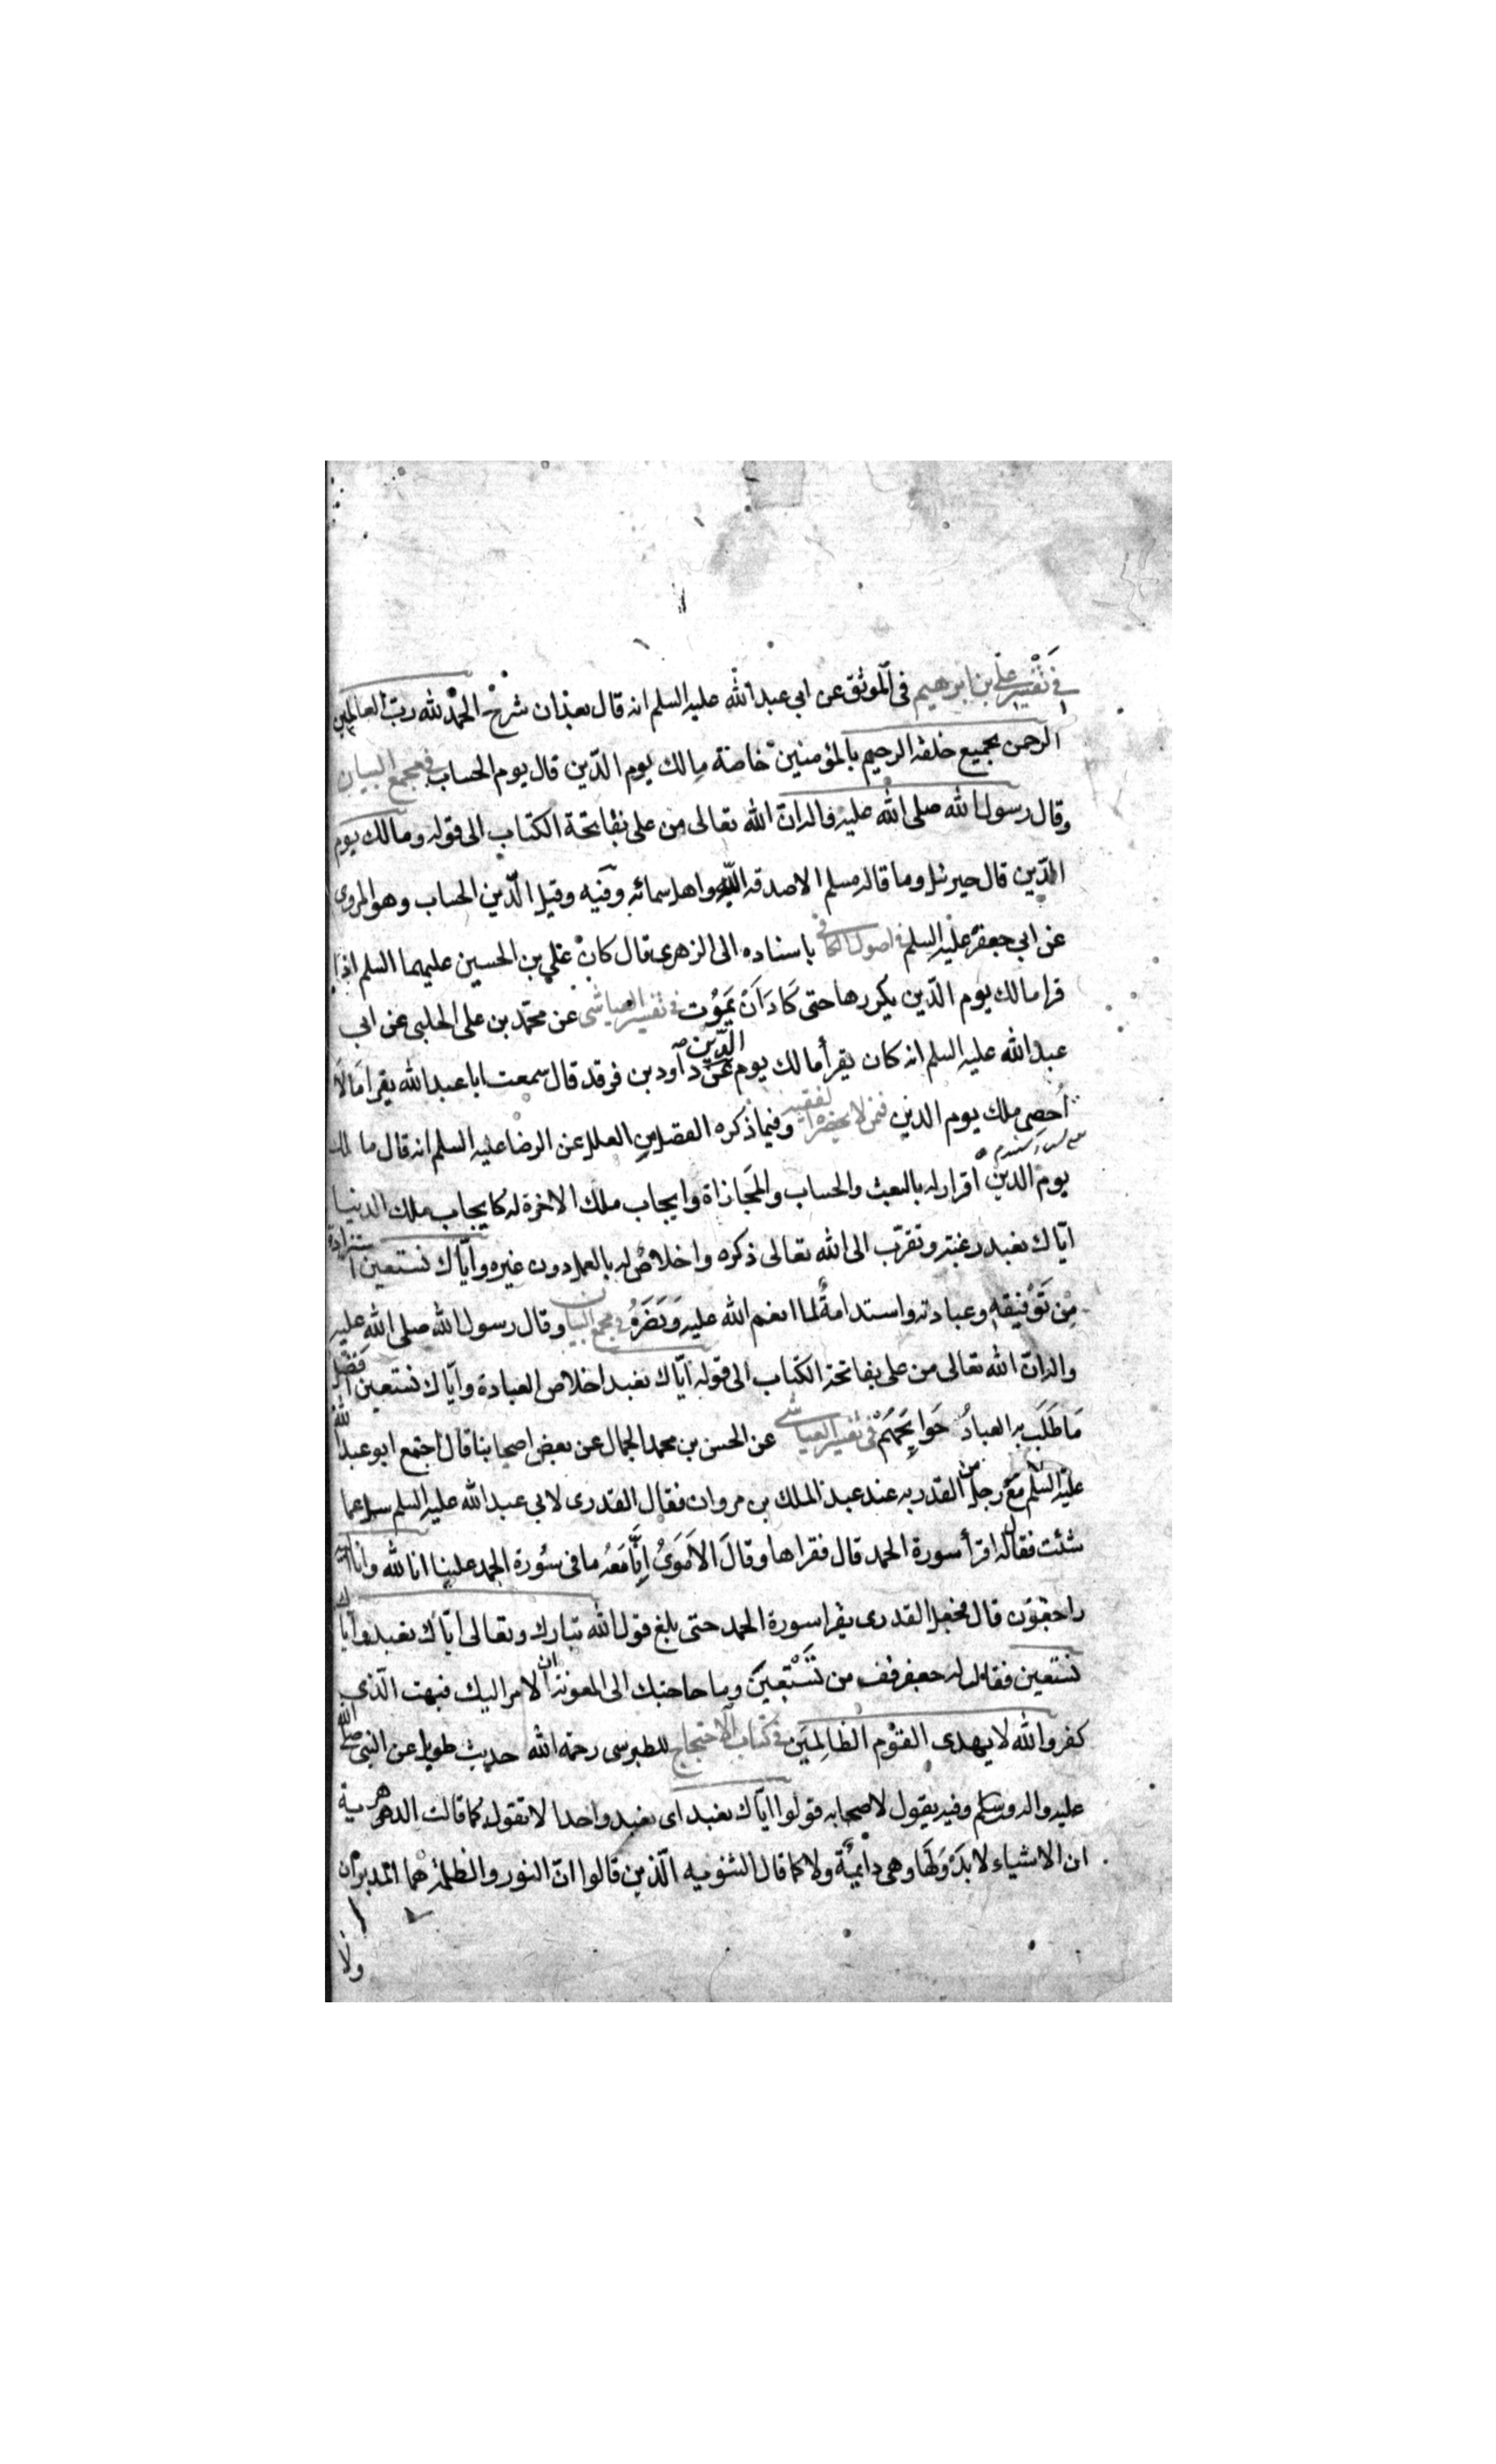 في تفسير علي بن ابرهيم في الموثق عن ابي عبد الله عليه السلم انه قال بعد ان شرح الحمد لله رب العالمين
الرحمن بجميع خلقه الرحيم بالمؤمنين خاصة مالك يوم الدين قال يوم الحساب في مجمع البيان
وقال رسول الله صلى الله عليه واله ان الله تعالى من على بفاتحة الكتاب الى قوله ومالك يوم
الدين قال جبرئيل وما قاله مسلم الا صدقه الله واهل سمائه وفيه وقيل الدين الحساب وهو المروى
عن ابي جعفر عليه السلم في اصول الكافي باسناده الى الزهرى قال كان علي بن الحسين عليهما السلم اذا
قرا مالك يوم الدين يكررها حتى كَادَ اَنْ يَمُوت في تفسير العياشي عن محمد بن على الحلبى عن ابي
عبد الله عليه السلم انه كان يقرأ مالك يوم الدين عن داود بن فرقد قال سمعت ابا عبد الله يقرا مَالاَ
اُحصى ملك يوم الدين فيمن لا يحضره الفقيه وفيما ذكره الفضل من العلل عن الرضا عليه السلم انه قال مالك
يوم الدين اقرار له بالبعث والحساب والمجازاة وايجاب ملك الاخرة له كايجاب ملك الدنيا
اياك نعبد رغبة وتقرب الى الله تعالى ذكره واخلاص له بالعمل دون غيره واياك نستعين استزادة
مِن تَوْفيقه وعبادته واستدامةً لما انعم الله عليه ونَصَرَهُ في مجمع البيان وقال رسول الله صلى الله عليه
واله ان الله تعالى من على بفاتحة الكتاب الى قوله اياك نعبد اخلاص العبادة واياك نستعين افضل
مَا طَلَبَ به العبادُ حَوَايِجَهُمْ في تفسير العياشي عن الحسن بن محمد الجمال عن بعض اصحابنا قال اجتمع ابو عبد الله
عليه السلم مع رجل من القدريه عند عبد الملك بن مروان فقال القدرى لابي عبد الله عليه السلم سل عما
شئت فقال له اقرأ سورة الحمد قال فقراها وقالَ الاَمَوىُ اِنَّا مَعَهُ ما فى سُورة الحمد علينا انا لله وانا اليه
راجعون قال فجعل القدرى يقرا سورة الحمد حتى بلغ قول الله تبارك وتعالى اياك نعبد واياك
نستعين فقال له جعفر قف من تَسْتَعِينَ وما حاجتك الى المعونة ان الامر اليك فبهت الذي
كفر والله لا يهدى القوم الظالِمينَ في كتاب الاحتجاج للطبرسى رحمة الله حديث طويل عن النبى صلى الله
عليه واله وسلم وفيه يقول لاصحابه قولوا اياك نعبد اى نعبد واحدا لا نقول كما قالت الدهرية
ان الاشياء لا بدَوَ لَهَا وهى دائمةٌ ولا كما قال الثنويه الذين قالوا ان النور والظلمة هما المدبران
ولا